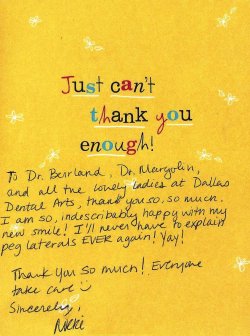 Just can't
thank you
enough!
To Dr. Beirland, Dr. Margolin,
and all the lovely ladies at Dallas
Dental Arts, thank you so, so much.
I am so, indescribably happy with my
new smile! I'll never have to explain
peg laterals EVER again! Yay!
Thank you so much! Everyone
take care
Sincerely,
Nikki